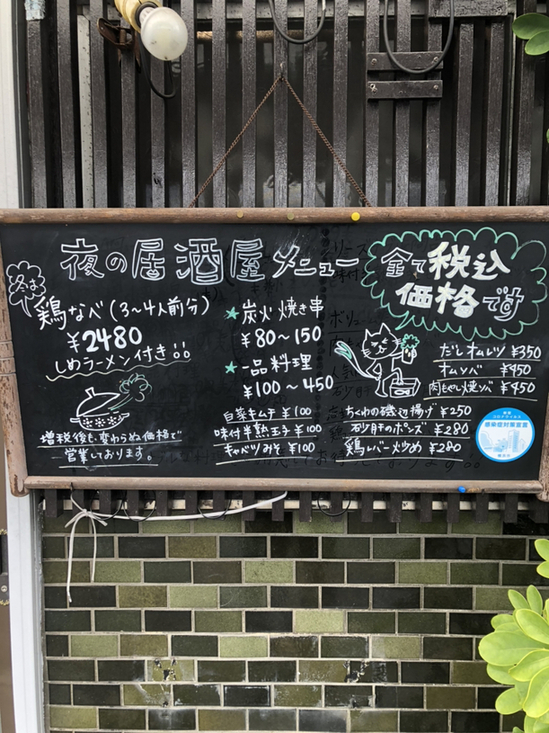 夜の居酒屋メニュー
全て税込
価格です
冬は
鶏なべ(3〜4人前分)
¥2480
しめラーメン付き
増税後も変わらぬ価格で
営業しております。
★炭火焼き串
¥80〜150
★一品料理
¥100〜450
自家キムチ ¥100
味付半熟玉子 ¥100
キャベツみそ ¥100
だしオムレツ ¥350
オムソバ ¥450
肉もやし焼ソバ ¥450
ちくわの磯辺揚げ ¥250
砂肝のポンズ ¥280
鶏レバー炒め ¥280
感染症対策宣言